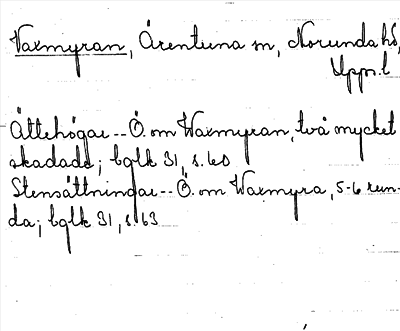 Vaxmyran, Ärentuna sn, Norunda hd,
Upps. l
Ättehögar -- Ö. om Waxmyran, två mycket
skadade; bglk 31, s. 60
Stensättningar -- Ö. om Waxmyra, 5-6 run-
da; bglk 31, s. 63